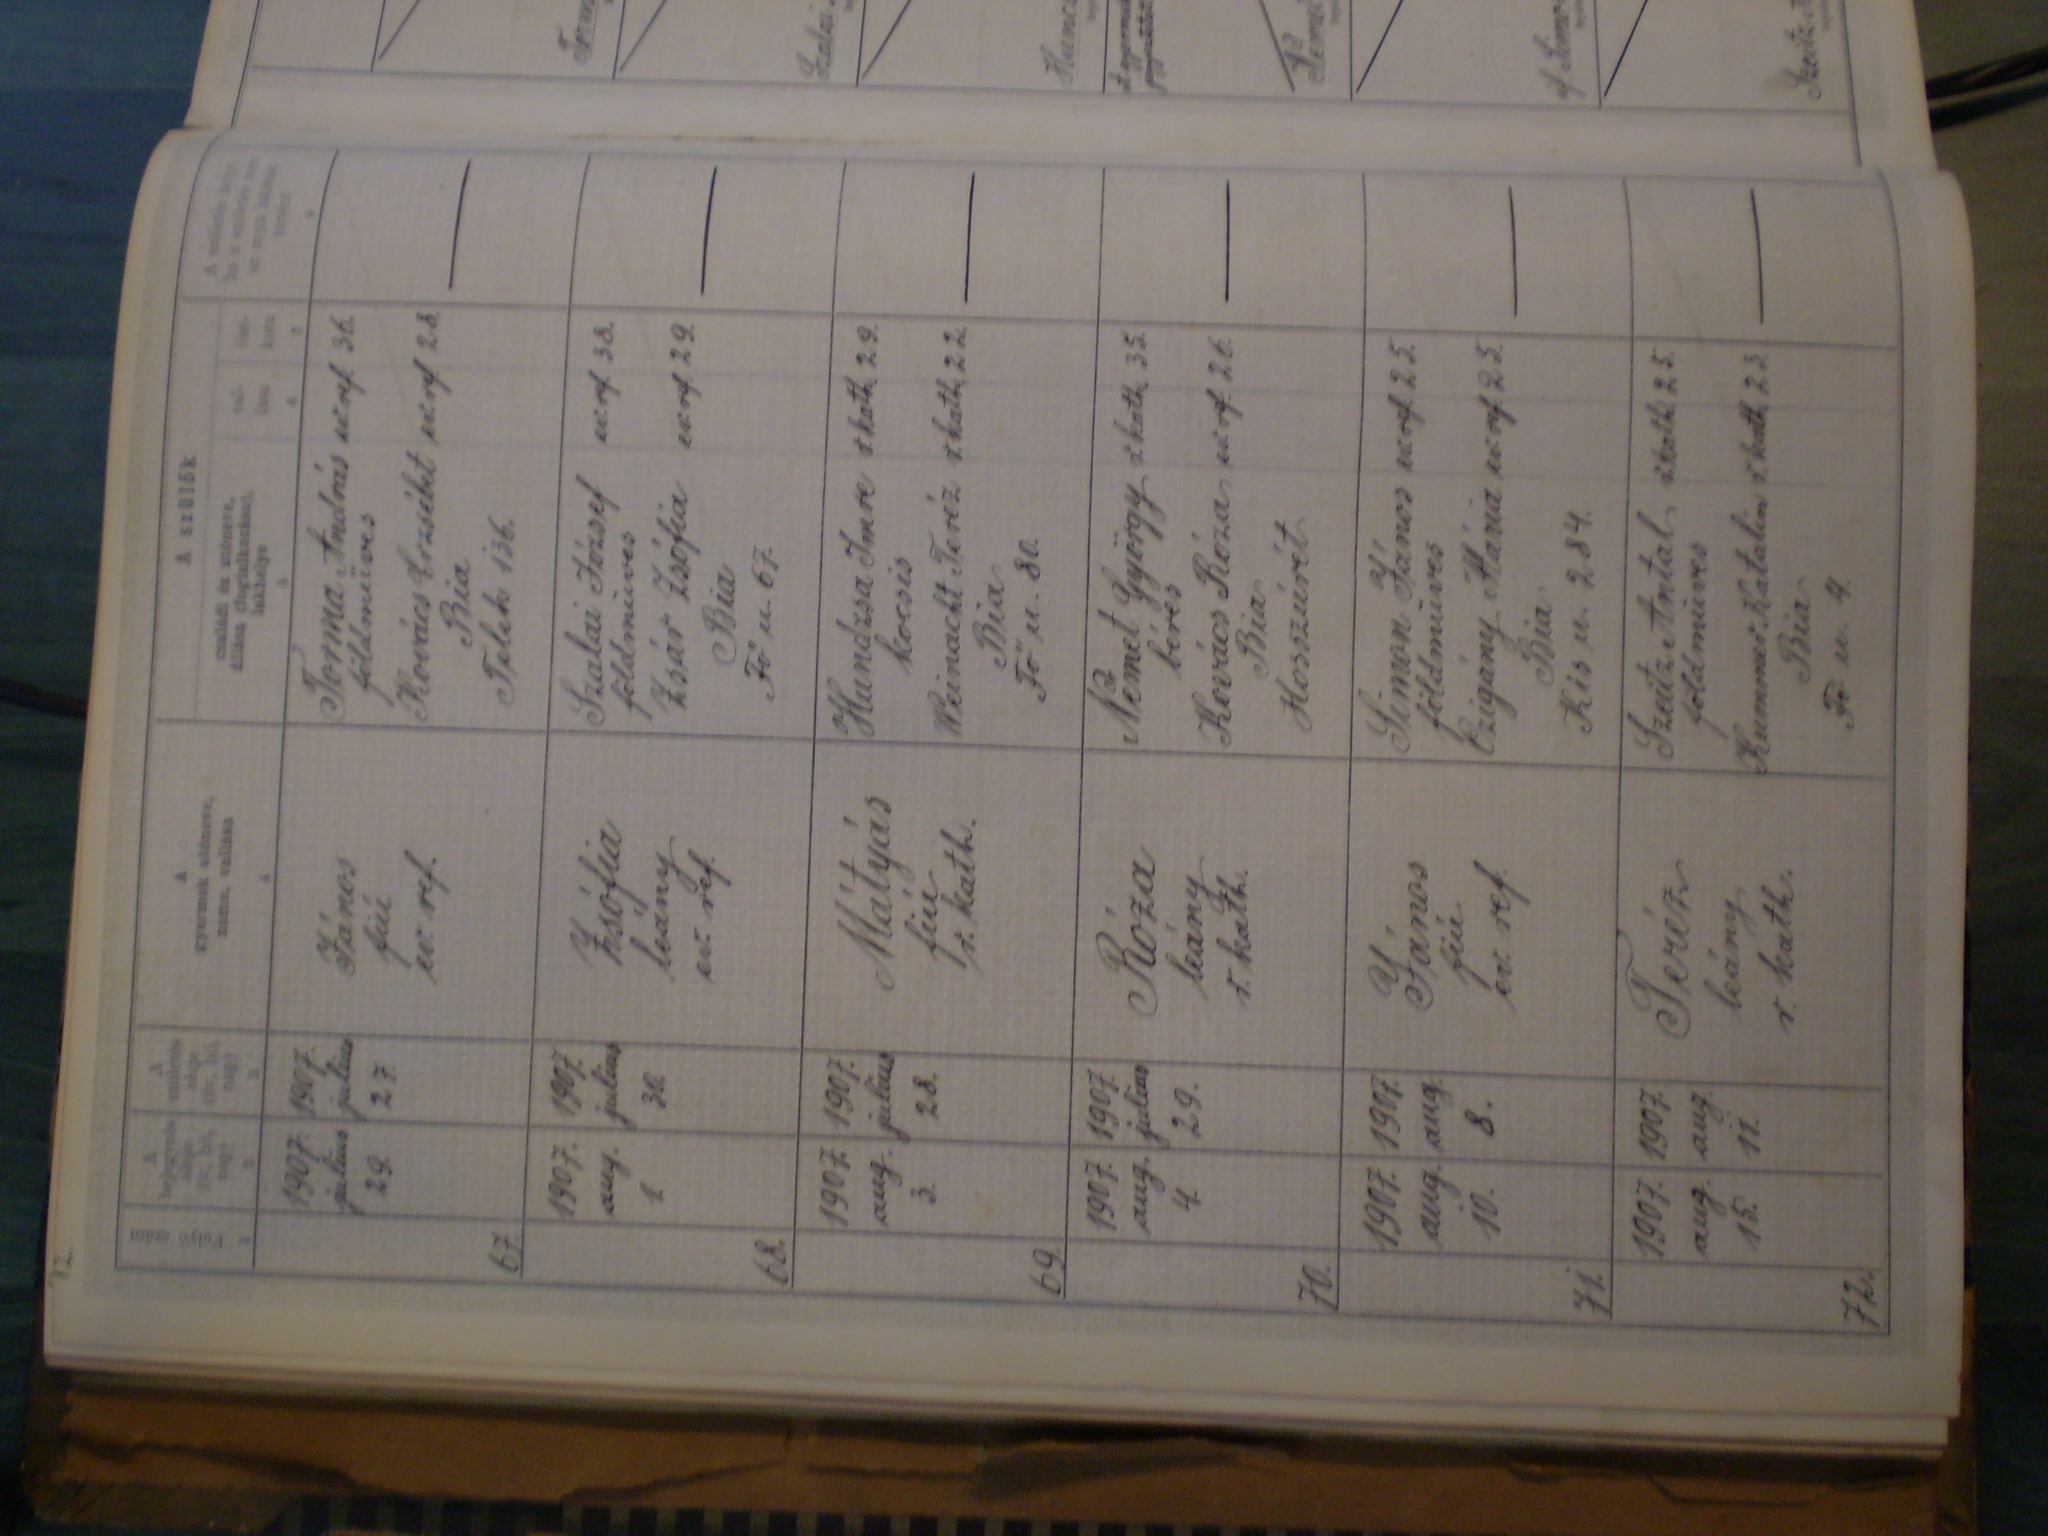 12.
Folyó szám
1
A
bejegyzés
ideje
(év, hó,
nap)
2
A
születés
ideje
(év, hó,
nap)
3
A
gyermek utóneve,
neme, vallása
4
A szülők
családi és utóneve,
állása (foglalkozása),
lakhelye
5
val-
lása
6
élet-
kora
7
67.
1907.
julius
29.
1907.
julius
27.
János
fiú
ev. ref.
Torma András ev. ref. 36.
földmüves
Kovács Erzsébet ev. ref. 28.
Bia
Telek 136.
68.
1907.
aug.
1.
1907.
julius
30.
Zsófia
leány
ev. ref.
Szalai József ev. ref. 38.
földmüves
Zsár Zsófia ev. ref. 29.
Bia
Fő u. 67.
69.
1907.
aug.
3.
1907.
julius
28.
Mátyás
fiu
r. kath.
Hundzsa Imre r. kath. 29.
kocsis
Weinacht Teréz r. kath. 22.
Bia
Fő u. 80.
70.
1907.
aug.
4.
1907.
julius
29.
Róza
leány
r. kath.
Német György r. kath. 35.
béres
Kovács Róza ev. ref. 26.
Bia
Hosszúrét
71.
1907.
aug.
10.
1907.
aug.
8.
János
fiú
ev. ref.
Simon János ev. ref. 25.
földmüves
Czigány Mária ev. ref. 25.
Bia
Kis u. 284.
72.
1907.
aug.
15.
1907.
aug.
11.
Teréz
leány
r. kath.
Szeitz Antal r. kath. 25.
földmüves
Kummer Katalin r. kath. 23.
Bia
Fő u. 4.